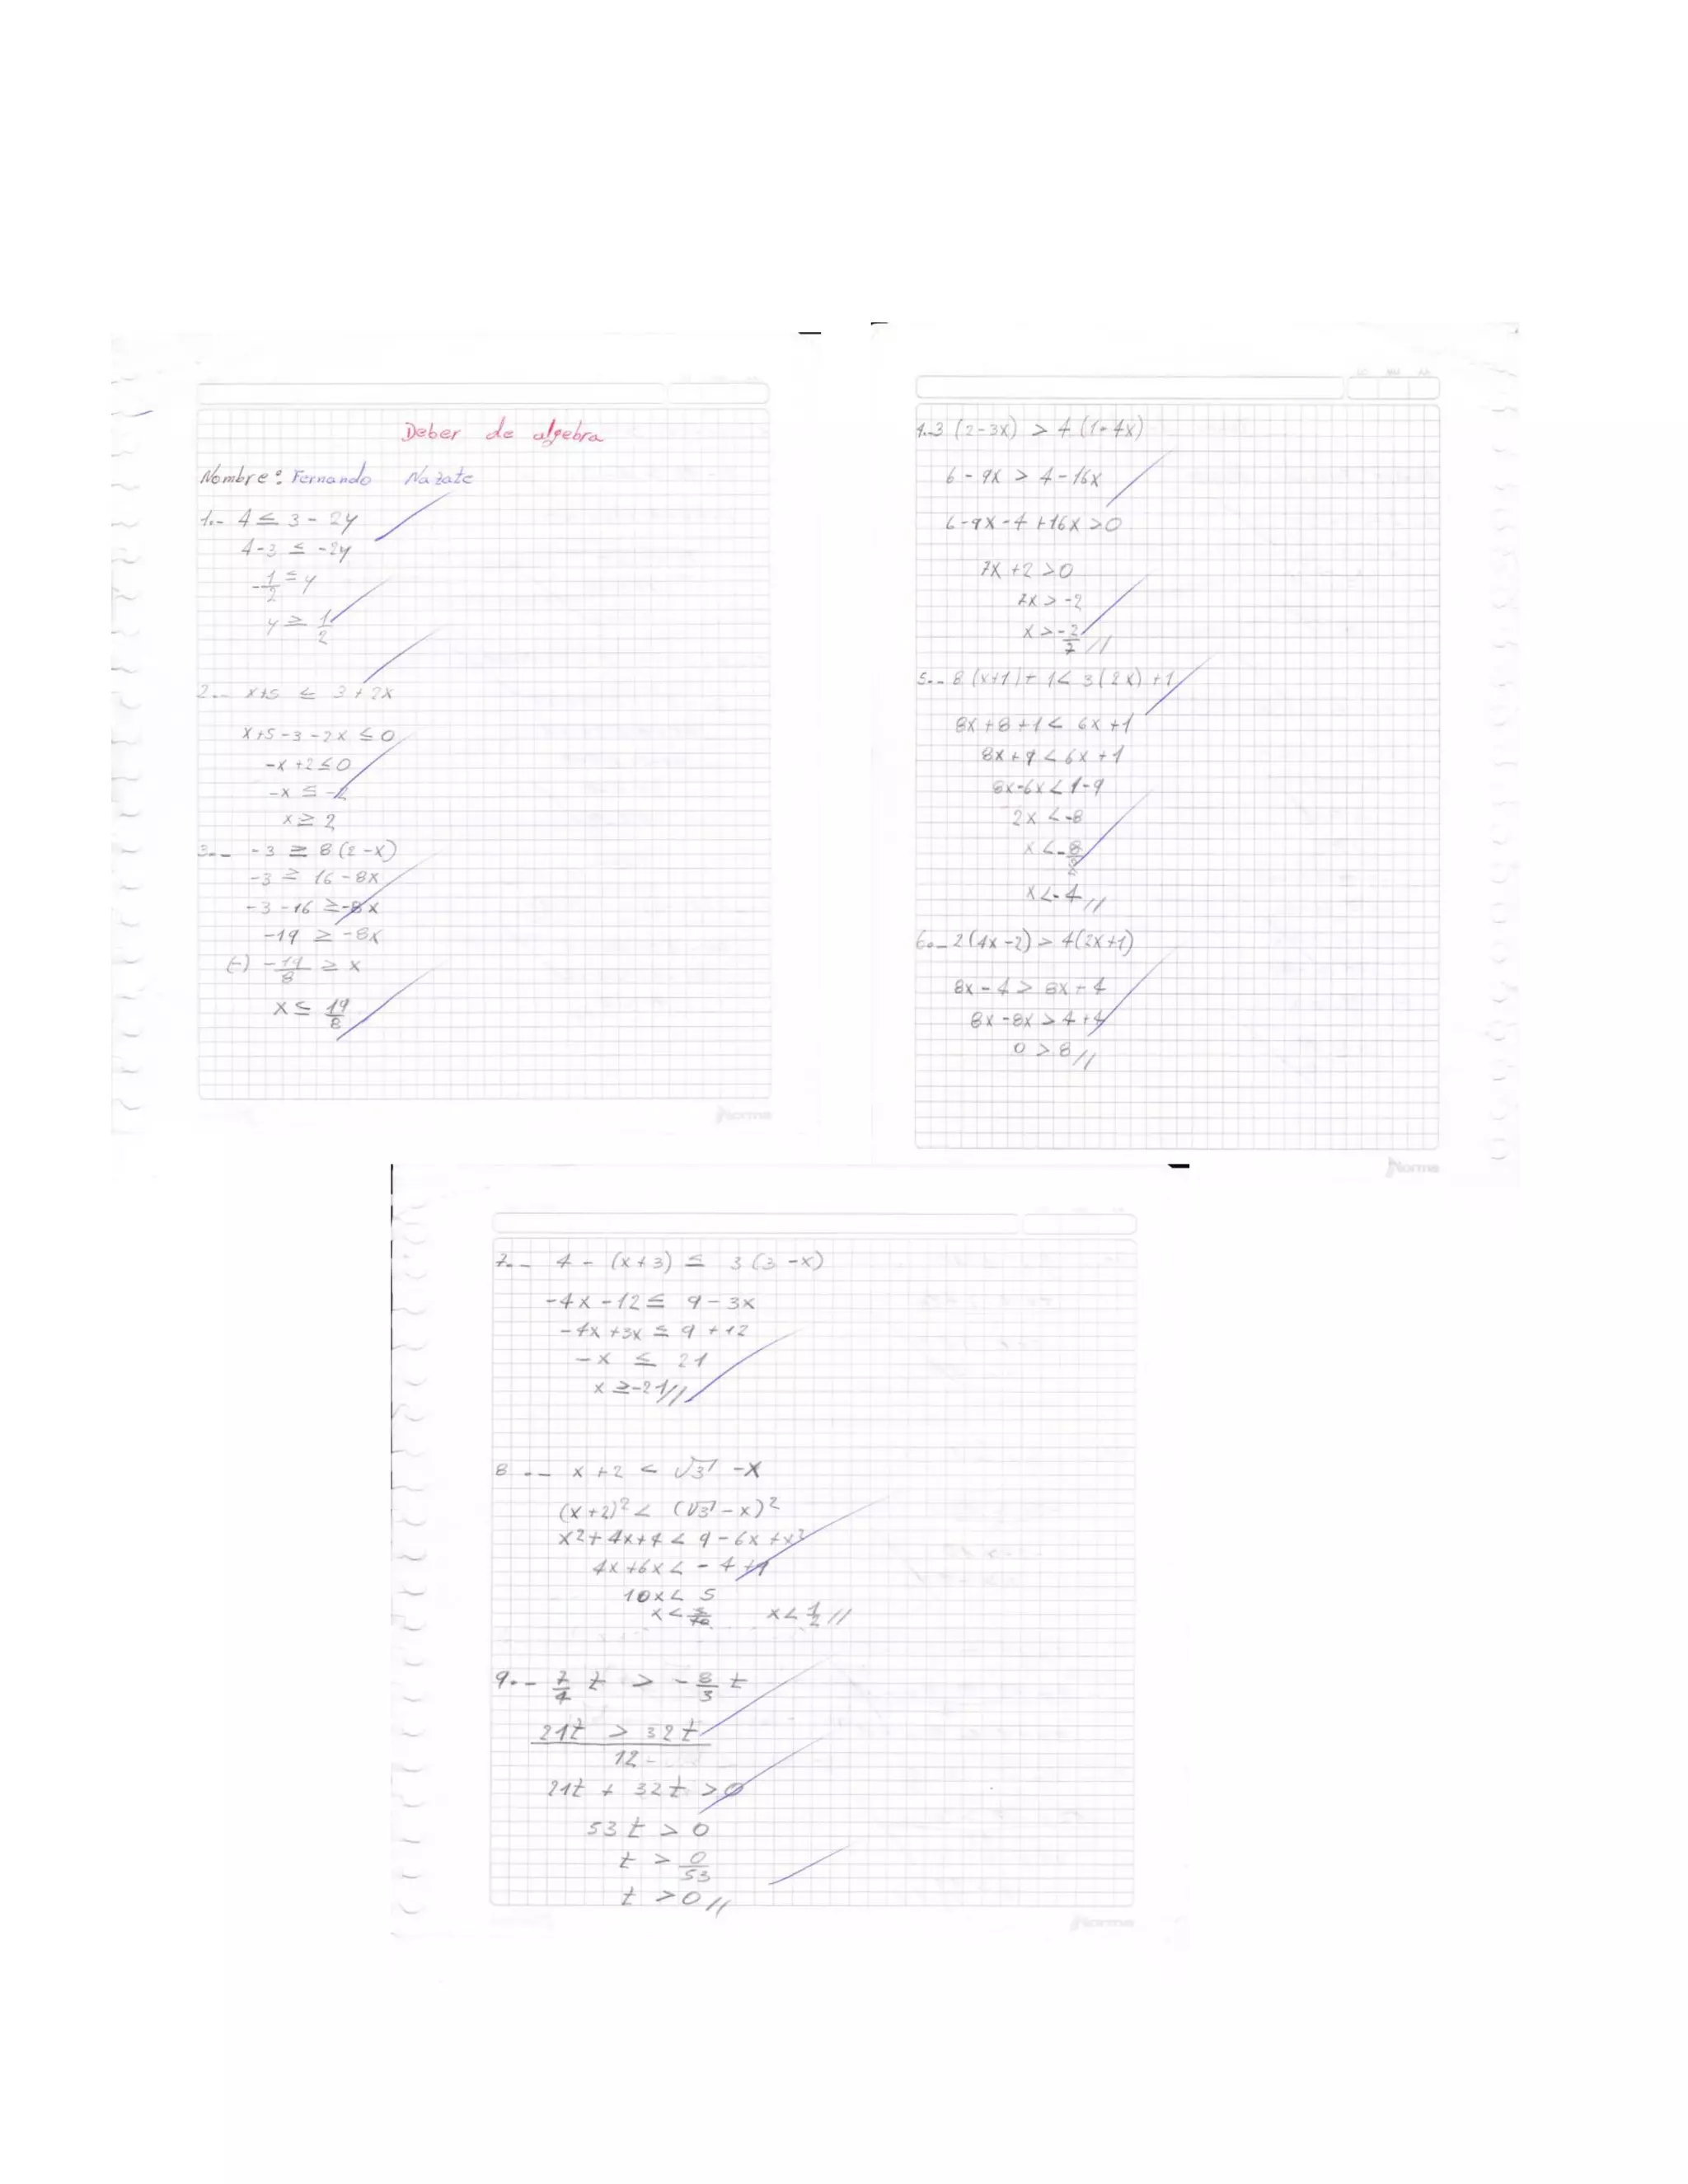 Deber de algebra
Nombre: Fernando Nazate
1.- 4 ≤ 3 - 2y
4-3 ≤ -2y
-1/2 ≤ y
y ≥ 1/2
2.- x+5 ≤ 3+2x
x+5-3-2x ≤ 0
-x+2 ≤ 0
-x ≤ -2
x ≥ 2
3.- -3 ≥ 8(2-x)
-3 ≥ 16-8x
-3-16 ≥ -8x
-19 ≥ -8x
(-) -19/8 ≥ x
x ≤ 19/8
Norma
DD MM AA
4.-3 (2-3x) > 4(1-4x)
6-9x > 4-16x
6-9x-4+16x >0
7x+2 >0
7x > -2
x > -2/7 //
5.- 8(x+1)+1 < 3(2x)+1
8x+8+1 < 6x+1
8x+9 < 6x+1
8x-6x < 1-9
2x < -8
x < -8/2
x < -4 //
6.- 2(4x-2) > 4(2x+1)
8x-4 > 8x+4
8x-8x > 4+4
0 > 8 //
Norma
7.- 4 - (x+3) ≤ 3(3-x)
-4x-12 ≤ 9-3x
-4x+3x ≤ 9+12
-x ≤ 21
x ≥ -21 //
8.- x+2 < √3 -x
(x+2)² < (√3-x)²
x²+4x+4 < 9-6x+x²
4x+6x < -4+9
10x < 5
x < 5/10 x < 1/2 //
9.- 7/4 t > -8/3 t
21t > 32t
12
21t + 32t > 0
53t > 0
t > 0/53
t > 0 //
Norma